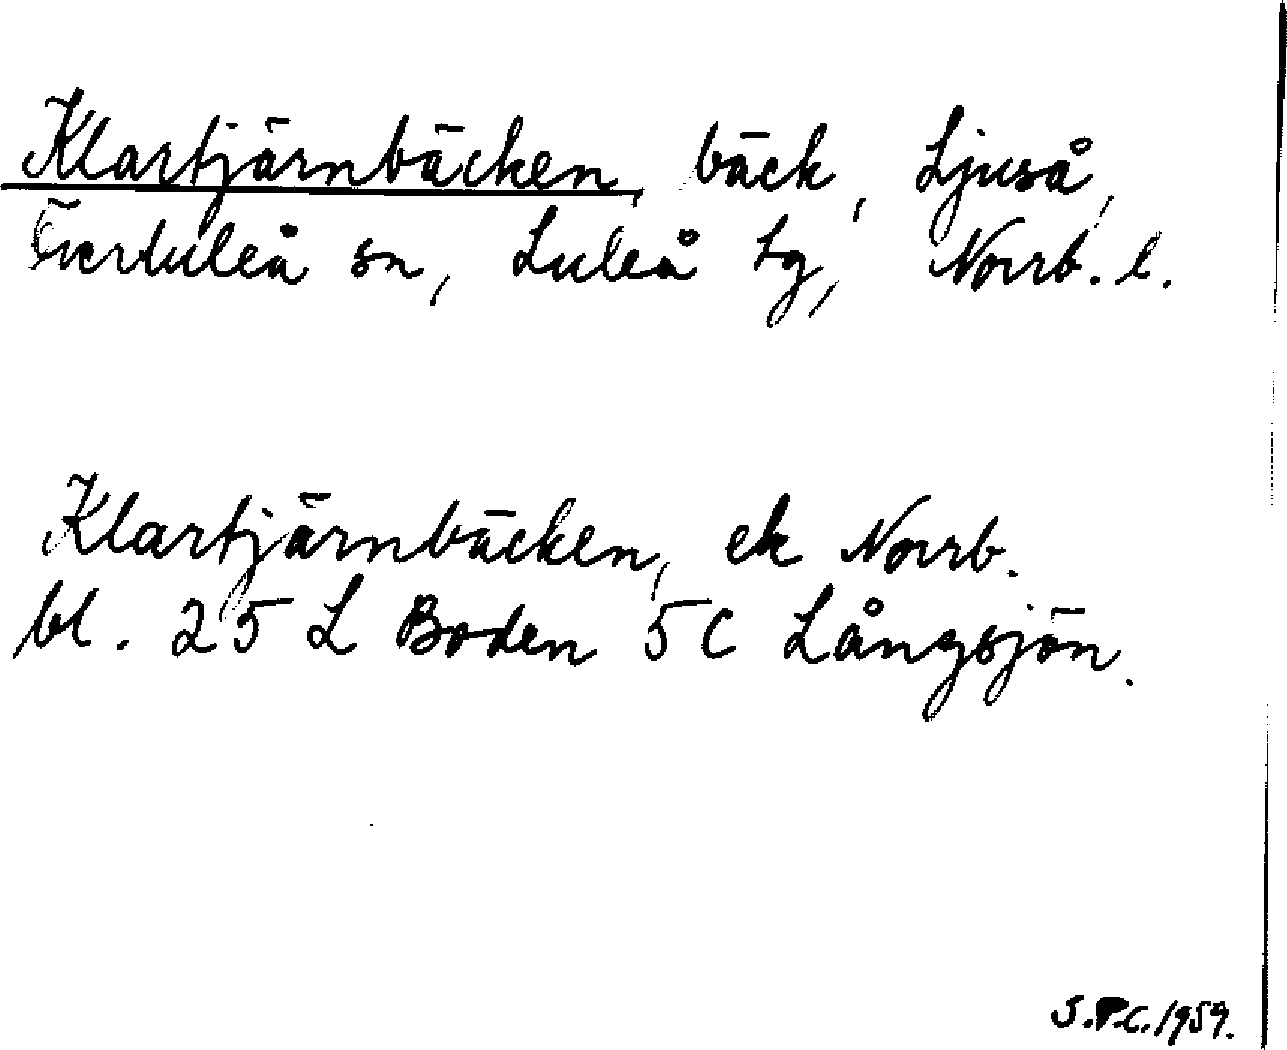 Klartjärnbäcken, bäck, Ljuså,
Överluleå sn, Luleå tg, Norrb. l.
Klartjärnbäcken, ek Norrb.
bl. 25 L Boden 5C Långsjön.
S.P.C. 1959.